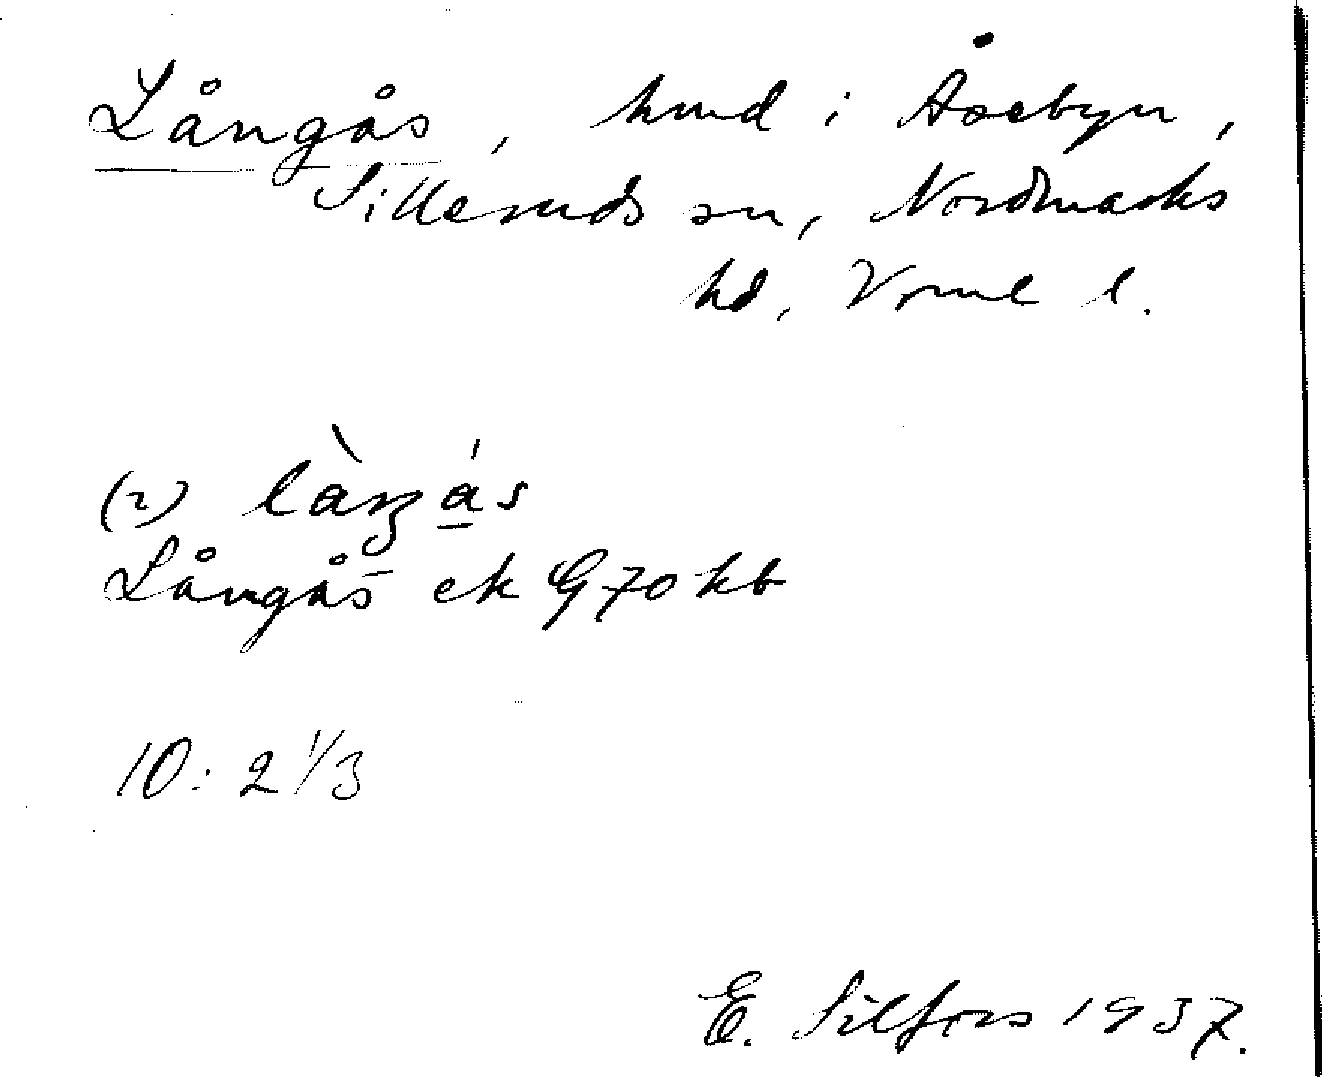 Långås, hmd i Åsebyn,
Silleruds sn, Nordmarks
hd, Vrml l.
(2) làŋás
Långås ek G 70 kb
10: 2 1/3
E. Silfors 1937.